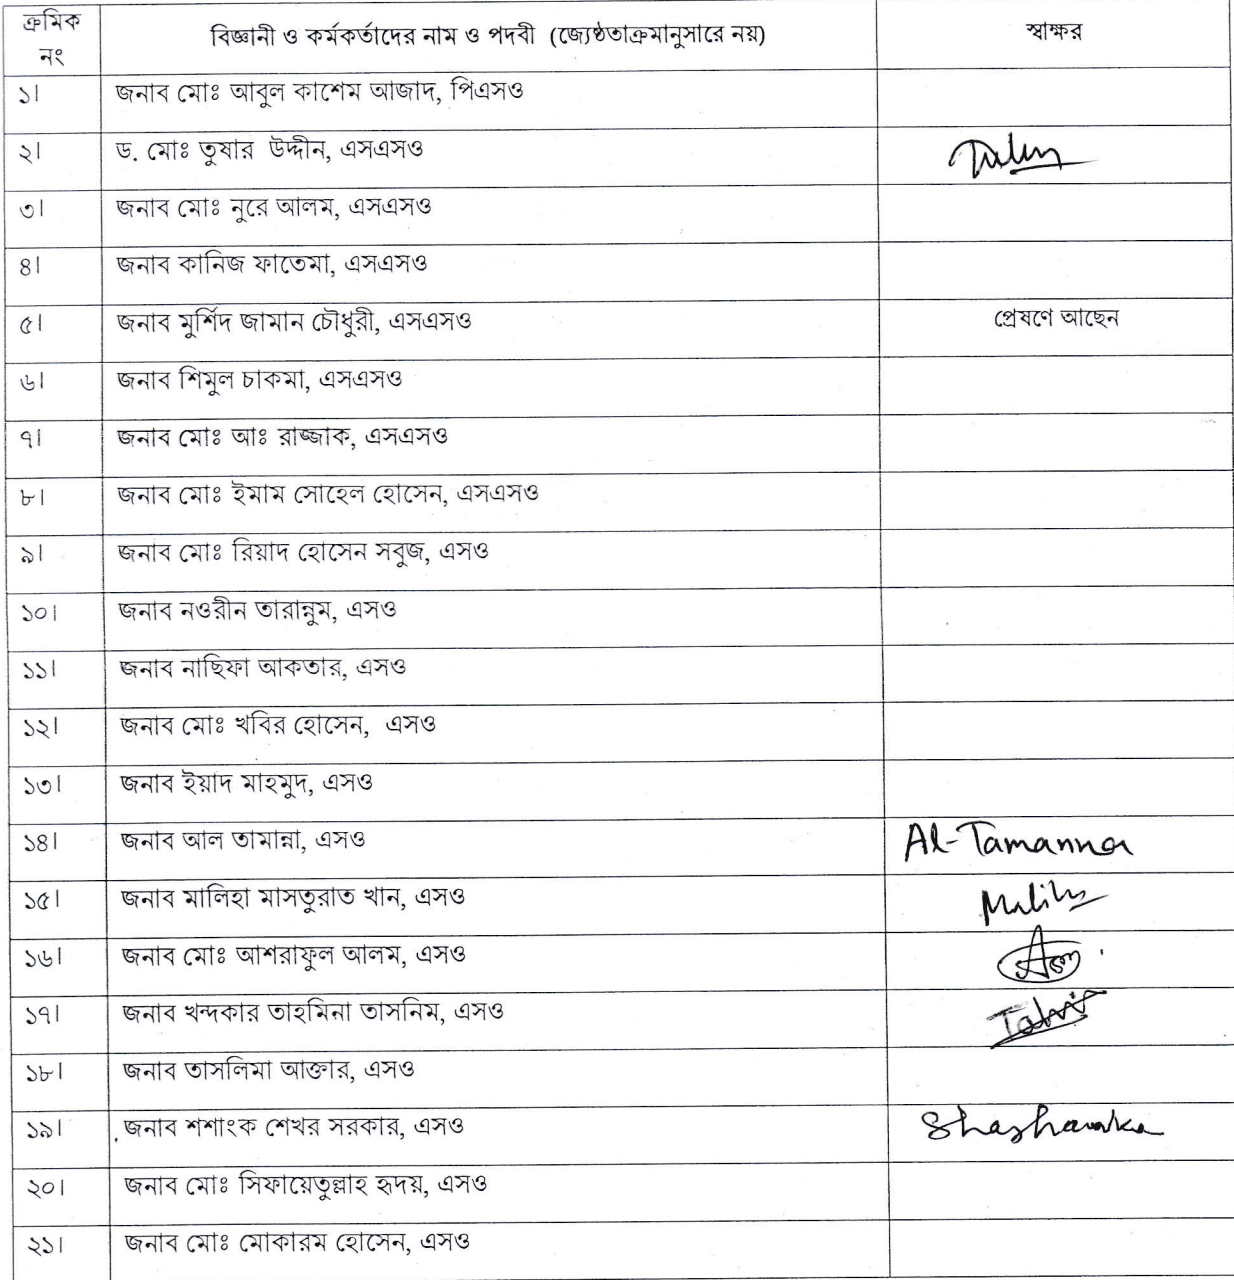 ক্রমিক নং বিজ্ঞানী ও কর্মকর্তাদের নাম ও পদবী (জ্যেষ্ঠতাক্রমানুসারে নয়) স্বাক্ষর
১। জনাব মোঃ আবুল কাশেম আজাদ, পিএসও
২। ড. মোঃ তুষার উদ্দীন, এসএসও
৩। জনাব মোঃ নুরে আলম, এসএসও
৪। জনাব কানিজ ফাতেমা, এসএসও
৫। জনাব মুর্শিদ জামান চৌধুরী, এসএসও প্রেষণে আছেন
৬। জনাব শিমুল চাকমা, এসএসও
৭। জনাব মোঃ আঃ রাজ্জাক, এসএসও
৮। জনাব মোঃ ইমাম সোহেল হোসেন, এসএসও
৯। জনাব মোঃ রিয়াদ হোসেন সবুজ, এসও
১০। জনাব নওরীন তারান্নুম, এসও
১১। জনাব নাছিফা আকতার, এসও
১২। জনাব মোঃ খবির হোসেন, এসও
১৩। জনাব ইয়াদ মাহমুদ, এসও
১৪। জনাব আল তামান্না, এসও Al-Tamanna
১৫। জনাব মালিহা মাসতুরাত খান, এসও Maliha
১৬। জনাব মোঃ আশরাফুল আলম, এসও
১৭। জনাব খন্দকার তাহমিনা তাসনিম, এসও
১৮। জনাব তাসলিমা আক্তার, এসও
১৯। জনাব শশাংক শেখর সরকার, এসও Shashanka
২০। জনাব মোঃ সিফায়েতুল্লাহ হৃদয়, এসও
২১। জনাব মোঃ মোকারম হোসেন, এসও